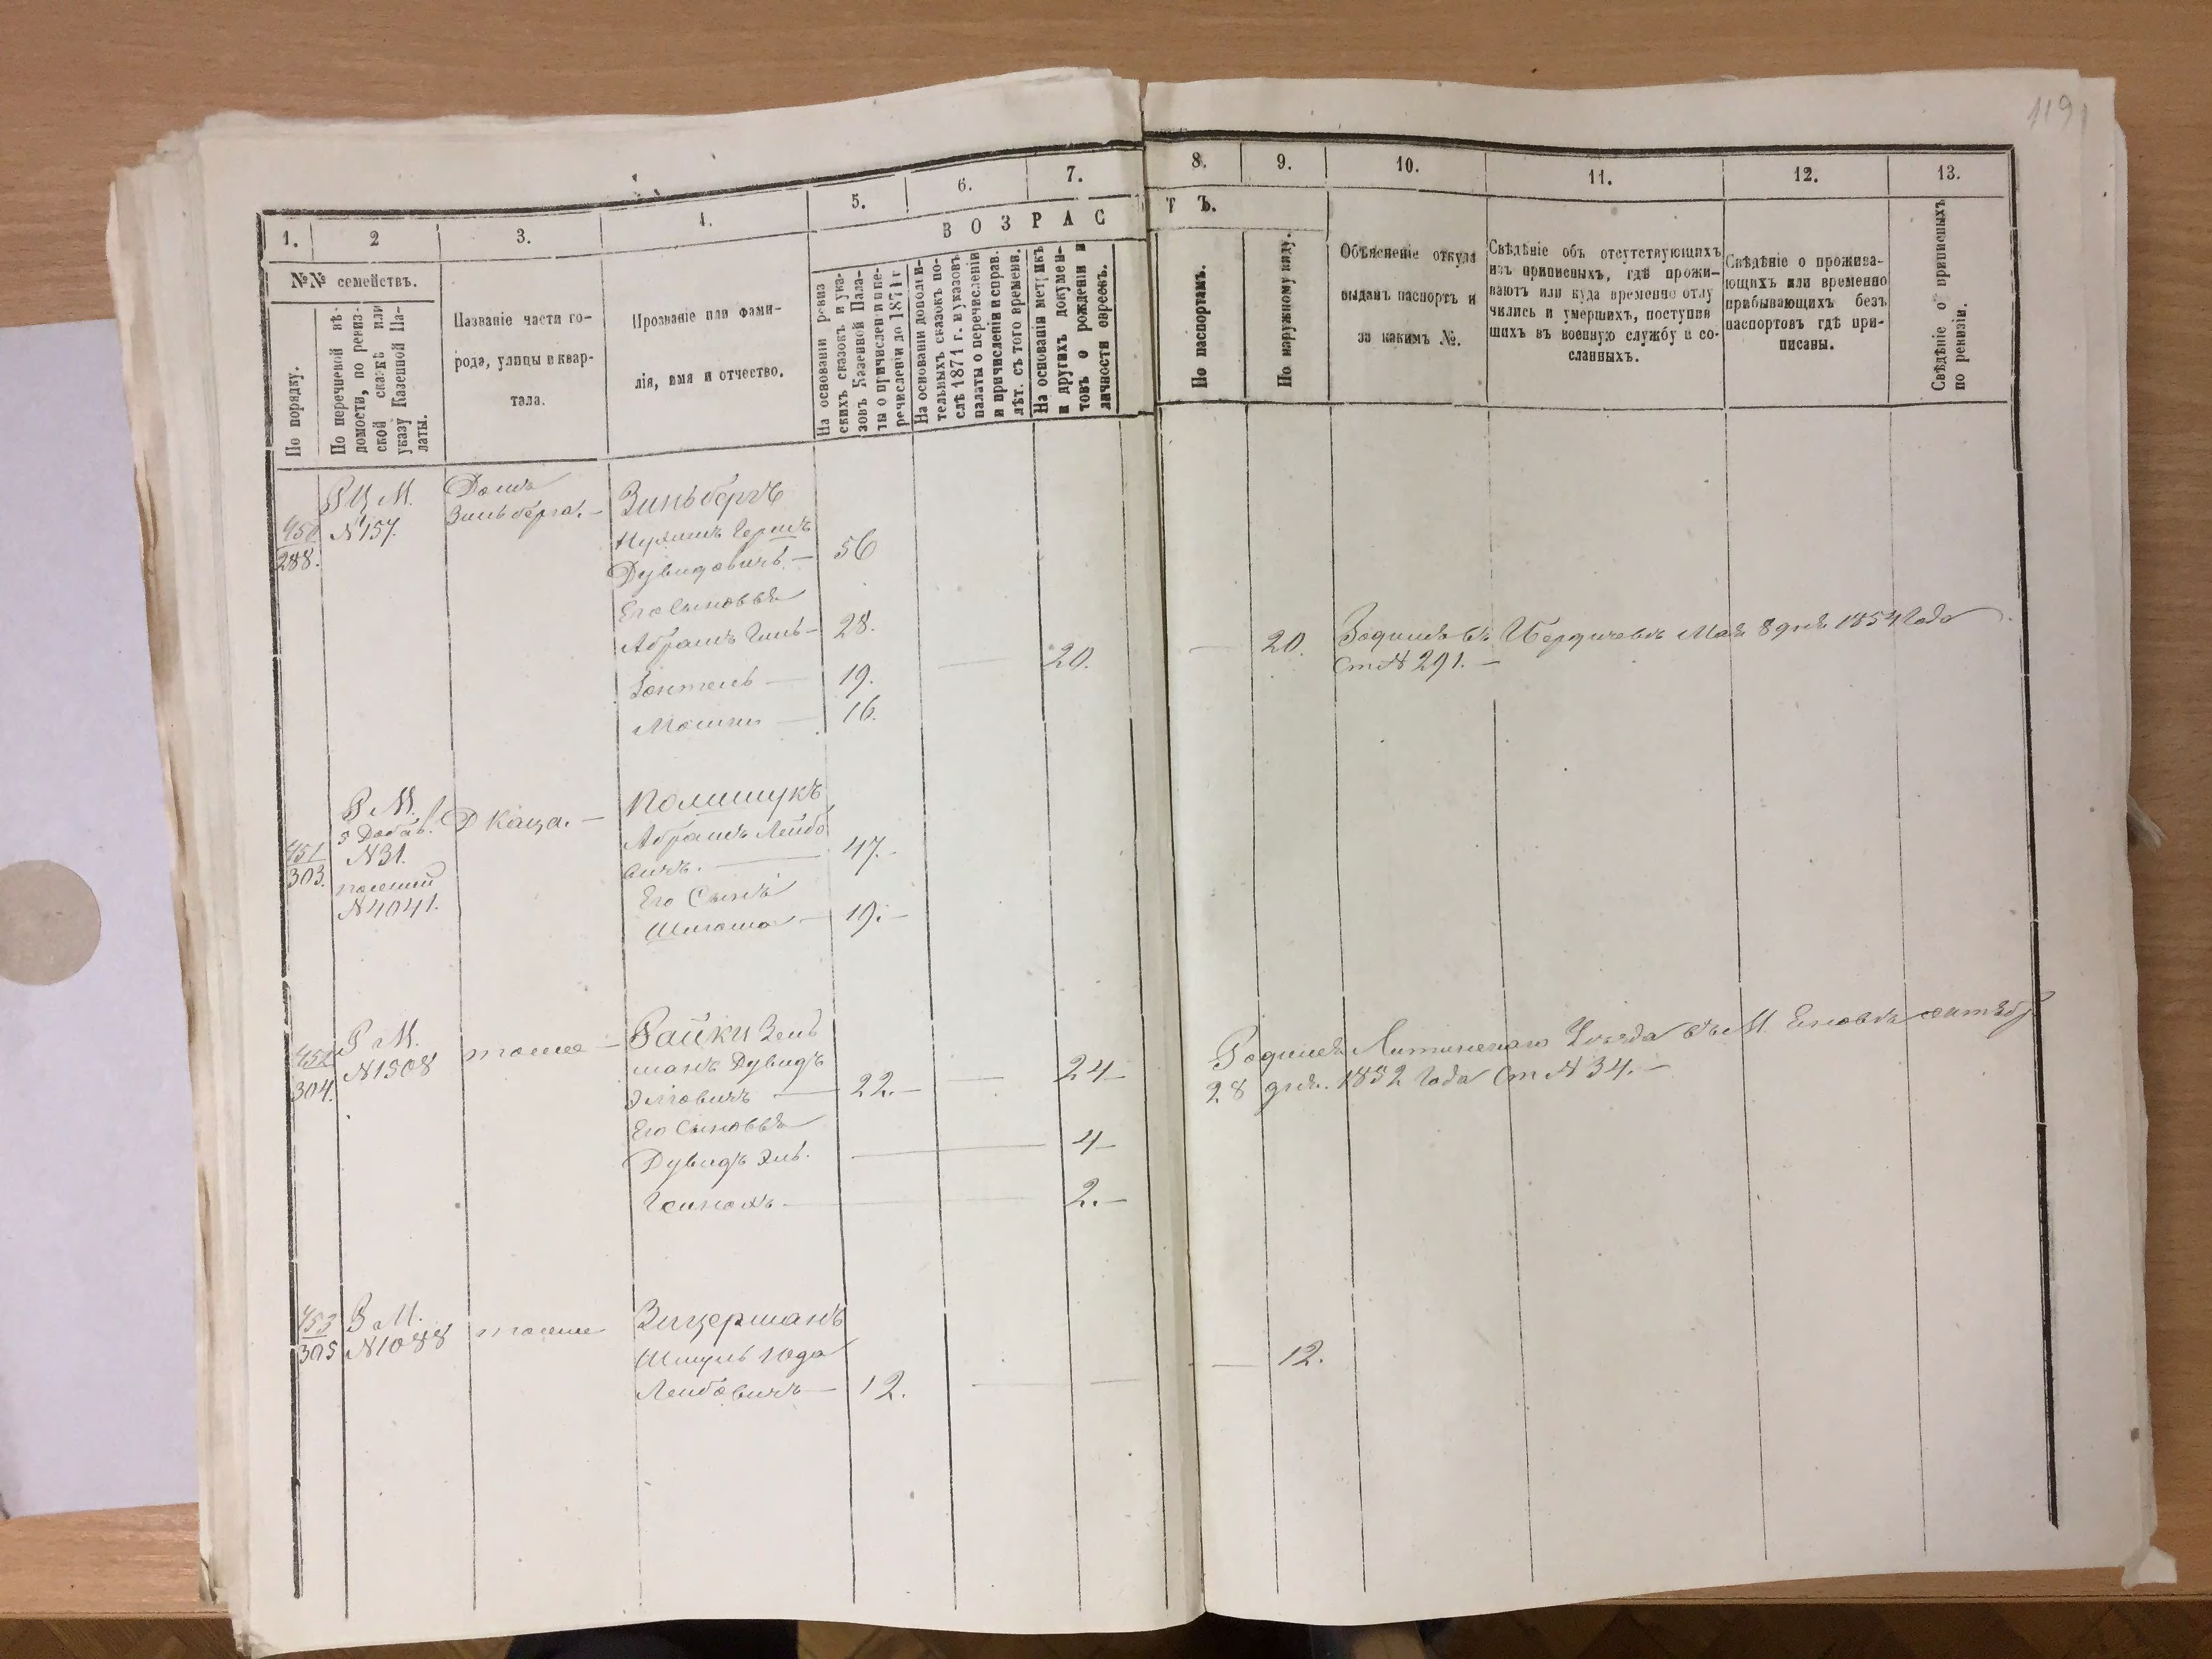 119
1.
2
3.
4.
5.
6.
7.
8.
9.
10.
11.
12.
13.
ВОЗРАС
ТЪ.
№№ семействъ.
По порядку.
По перечневой вѣ-
домости, по ревиз-
ской сказкѣ или
указу Казенной Па-
латы.
Названіе части го-
рода, улицы и квар-
тала.
Прозваніе или фами-
лія, имя и отчество.
На основаніи ревиз
скихъ сказокъ и ука-
зовъ Казенной Пала-
ты о причислен и и пе-
речисленіи до 1871 г
На основаніи дополни-
тельныхъ сказокъ по-
слѣ 1871 г. и указовъ
палаты о перечисленіи
и причисленіи и справ.
лѣт. съ того времени.
На основаніи метрикъ
и другихъ докумен-
товъ о рожденіи и
личности евреевъ.
По паспортамъ.
По наружному виду.
Объясненіе откуда
выданъ паспортъ и
за какимъ №.
Свѣдѣніе объ отсутствующихъ
изъ приписныхъ, гдѣ прожи-
ваютъ или куда временно отлу
чились и умершихъ, поступив
шихъ въ военную службу и со-
сланныхъ.
Свѣдѣніе о прожива-
ющихъ или временно
прибывающихъ безъ
паспортовъ гдѣ при-
писаны.
Свѣдѣніе о приписныхъ
по ревизіи.
450
288.
№157.
Домъ
Зильберга. —
Зильбергъ
Гершъ
Дувидовичъ — 56
Его Сыновья
Абрамъ — 28.
— 19. — 20. — 20.
Мошко — 16.
Бердичевъ Мая 8 дня 1854 года
Ст № 291. —
451
303.
Р М.
№31.
№4041.
Д Каца. —
Полищукъ
Абрамъ Лейбо
вичъ. — 47. —
Его Сынъ
Шлiома — 19. —
452
304.
Р М.
№1508
тоже —
Райки Зель
манъ Дувидъ
Эліовичъ — 22. — — 24 —
Его Сыновья
Дувидъ Эль. — 4 —
— 2. —
Родился Литинскаго Уѣзда въ М.
28 дня. 1852 года Ст № 34. —
453
305
№1088
тоже
Зицерманъ
Шмуль Юда
Лейбовичъ — 12. — — — 12.